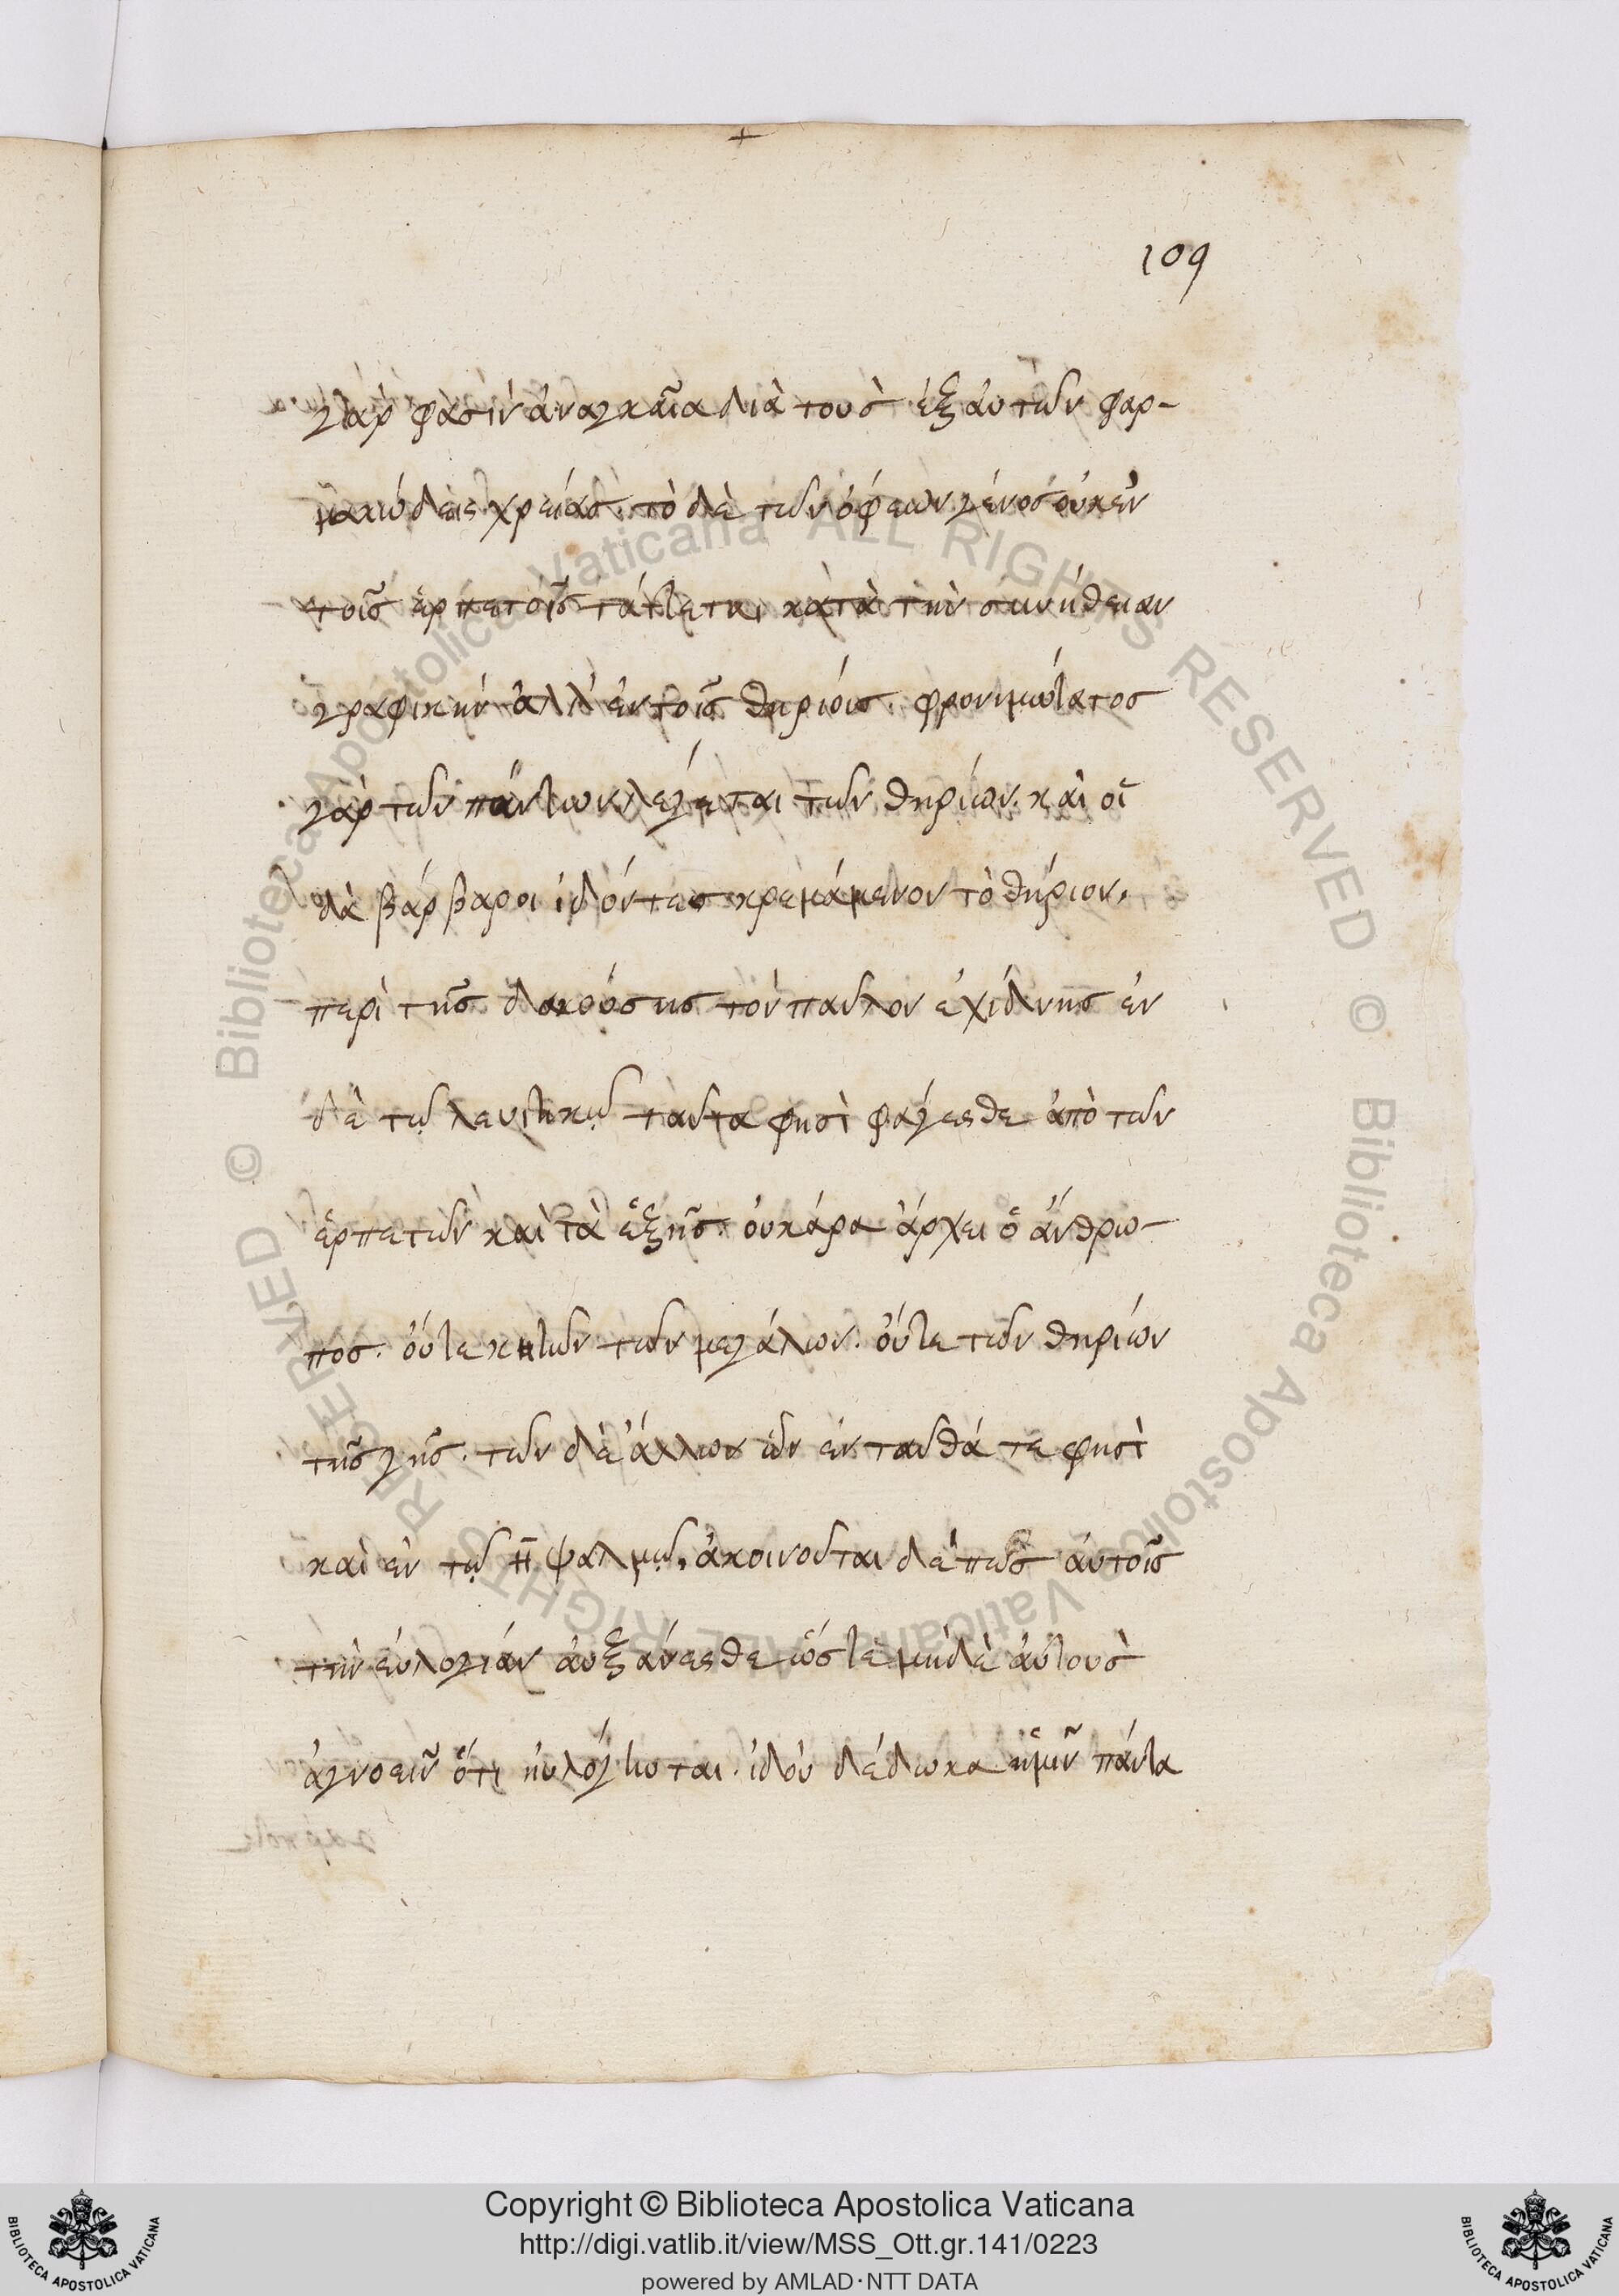 109
γὰρ φασὶν ἀναγκαῖα διὰ τοὺς ἐξ αὐτῶν φαρ-
μακώδεις χρείας. τὸ δὲ τῶν ὄφεων γένος οὐκ ἐν
τοῖς ἑρπετοῖς τάττεται κατὰ τὴν συνήθειαν
γραφικὴν ἀλλ' ἐν τοῖς θηρίοις. φρονιμώτατος
γὰρ τῶν πάντων λέγεται τῶν θηρίων. καὶ οἱ
δὲ βάρβαροι ἰδόντες κρεμάμενον τὸ θήριον,
περὶ τῆς δακούσης τὸν παῦλον ἐχίδνης ἐν
δὲ τῷ λευιτικῷ ταῦτα φησὶ φάγεσθε ἀπὸ τῶν
ἑρπετῶν καὶ τὰ ἑξῆς. οὐκ άρα ἄρχει ὁ ἄνθρω-
πος. οὔτε κητῶν τῶν μεγάλων. οὔτε τῶν θηρίων
τῆς γῆς. τῶν δὲ ἄλλων ὧν ἐνταῦθά τε φησὶ
καὶ ἐν τῷ η ψαλμῷ, ἀκοινοῦται δέ πως αὐτοῖς
τὴν εὐλογίαν αὐξάνεσθε ὥστε μηδὲ αὐτοὺς
ἀγνοεῖν ὅτι ηὐλόγηται. ἰδού δέδωκα ἡμῖν πάντα
Copyright © Biblioteca Apostolica Vaticana
http://digi.vatlib.it/view/MSS_Ott.gr.141/0223
powered by AMLAD·NTT DATA